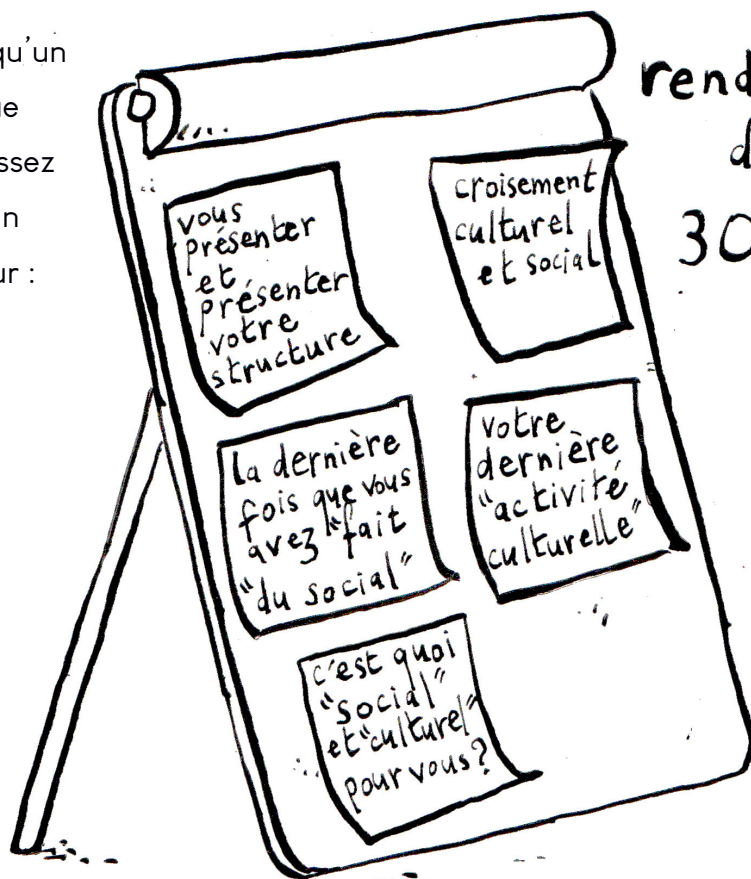 qu'un
ue
ssez
n
ur :
rend
d
30
vous
présenter
et
présenter
votre
structure
croisement
culturel
et social
la dernière
fois que vous
avez "fait
"du social"
votre
dernière
"activité
culturelle"
c'est quoi
"social"
et "culturel"
pour vous?